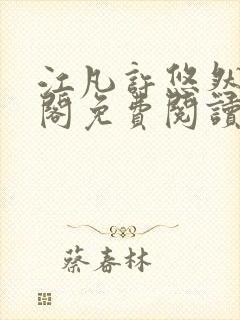 江凡許悠然
閣免費閱讀
蔡春林